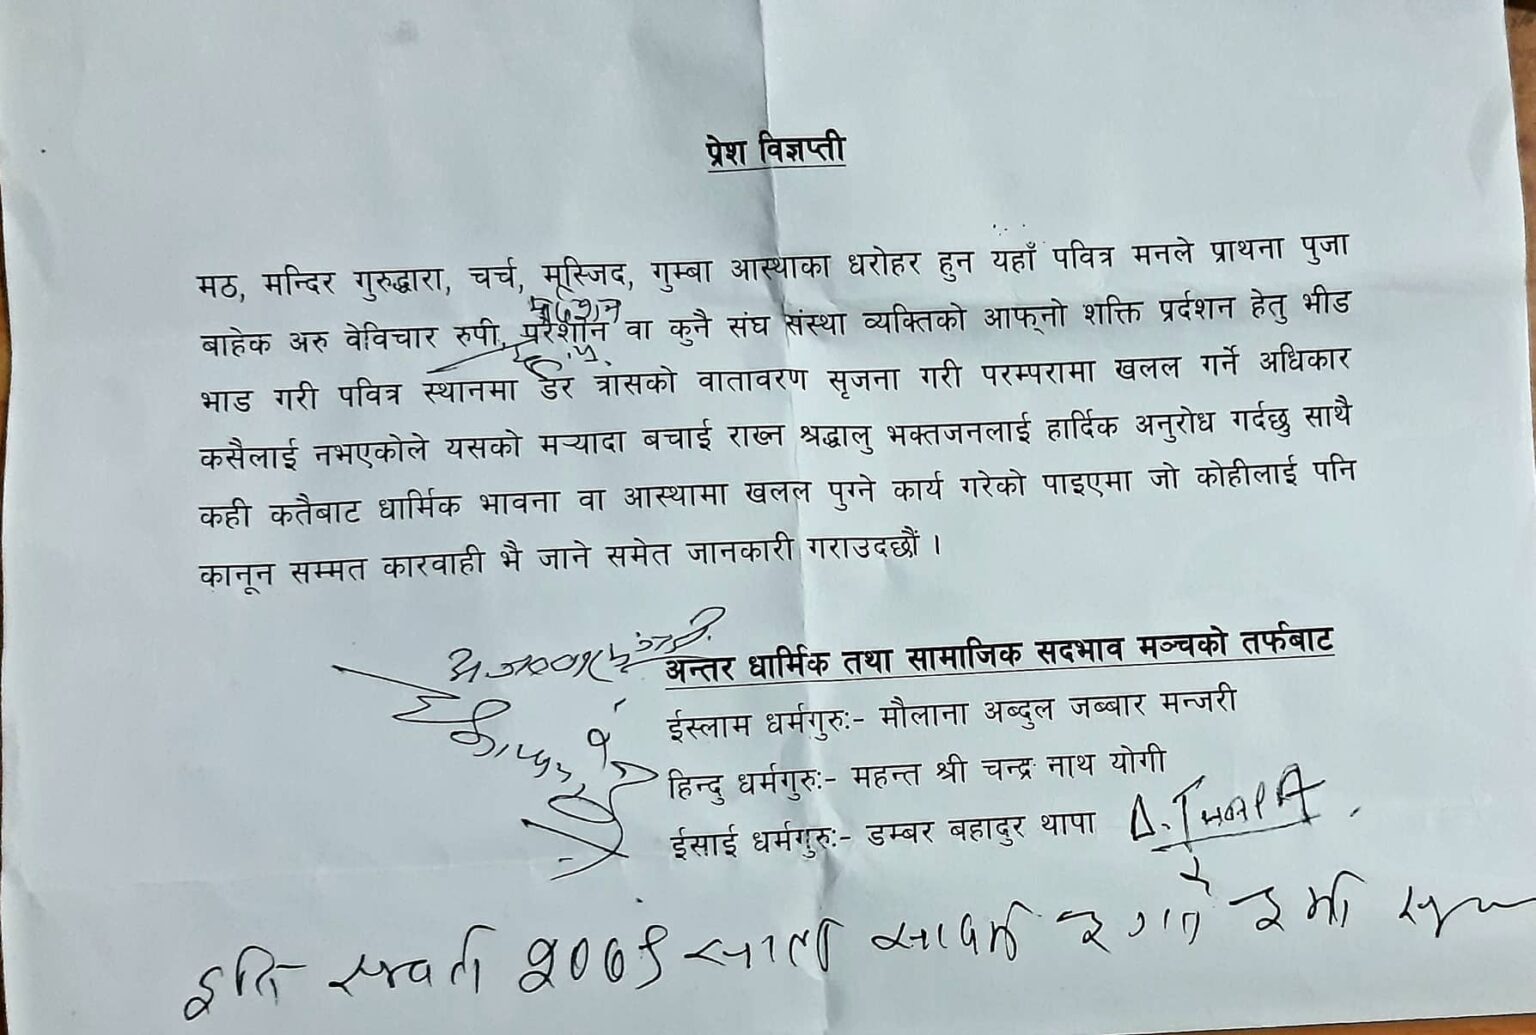 प्रेश विज्ञप्ती
मठ, मन्दिर गुरुद्धारा, चर्च, मूस्जिद, गुम्बा आस्थाका धरोहर हुन यहाँ पवित्र मनले प्राथना पुजा
बाहेक अरु वेविचार रुपी, प्ररेशान वा कुनै संघ संस्था व्यक्तिको आफ्नो शक्ति प्रर्दशन हेतु भीड
भाड गरी पवित्र स्थानमा डर त्रासको वातावरण सृजना गरी परम्परामा खलल गर्ने अधिकार
कसैलाई नभएकोले यसको मर्‍यादा बचाई राख्न श्रद्धालु भक्तजनलाई हार्दिक अनुरोध गर्दछु साथै
कही कतैबाट धार्मिक भावना वा आस्थामा खलल पुग्ने कार्य गरेको पाइएमा जो कोहीलाई पनि
कानून सम्मत कारवाही भै जाने समेत जानकारी गराउदछौं ।
अन्तर धार्मिक तथा सामाजिक सदभाव मञ्चको तर्फबाट
ईस्लाम धर्मगुरुः- मौलाना अब्दुल जब्बार मन्जरी
हिन्दु धर्मगुरुः- महन्त श्री चन्द्र नाथ योगी
ईसाई धर्मगुरुः- डम्बर बहादुर थापा D. THAPA
इति सम्वत २०७९ साल